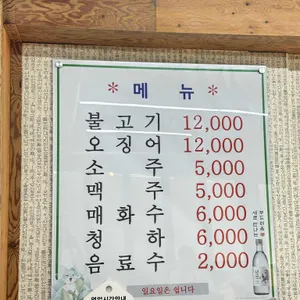 * 메 뉴 *
불 고 기 12,000
오 징 어 12,000
소 주 5,000
맥 주 5,000
매 화 수 6,000
청 하 6,000
음 료 수 2,000
일요일은 쉽니다
영업시간안내